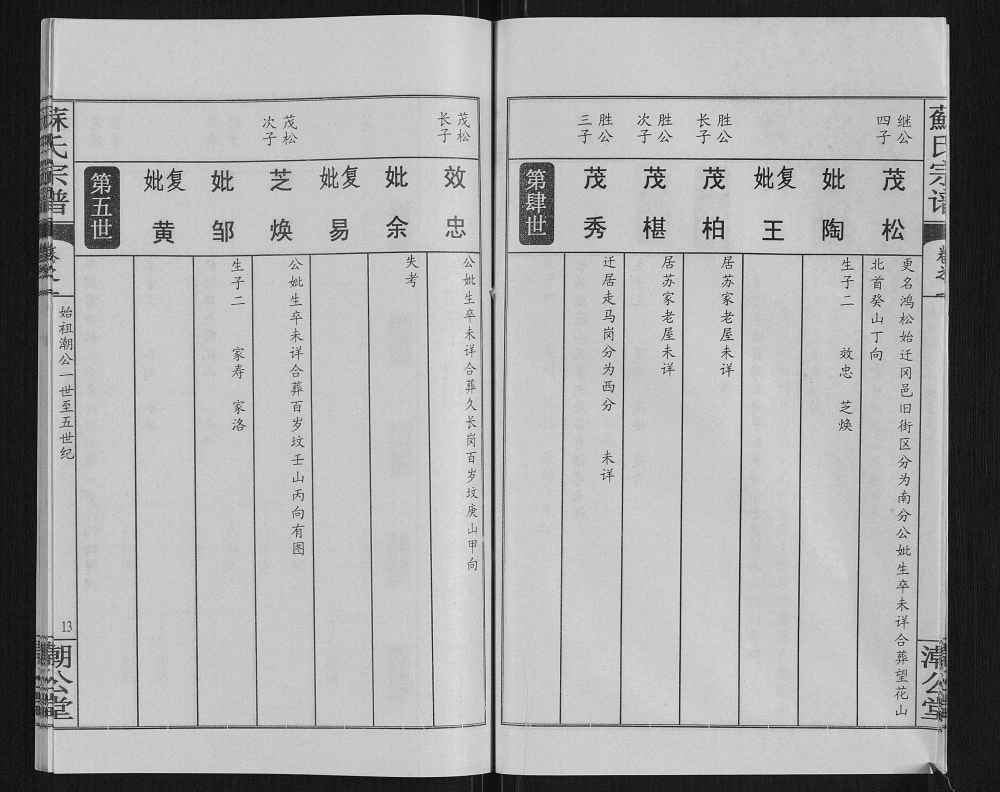 蘇氏宗谱
卷之一
潮公堂
继公
四子
茂松
更名鸿松始迁冈邑旧街区分为南分公妣生卒未详合葬望花山
北首癸山丁向
妣陶
生子二 效忠 芝焕
复妣王
胜公
长子
茂柏
居苏家老屋未详
胜公
次子
茂椹
居苏家老屋未详
胜公
三子
茂秀
迁居走马岗分为西分 未详
第肆世
茂松
长子
效忠
公妣生卒未详合葬久长岗百岁坟庚山甲向
妣余
失考
复妣易
茂松
次子
芝焕
公妣生卒未详合葬百岁坟壬山丙向有图
妣邹
生子二 家寿 家洛
复妣黄
第五世
蘇氏宗谱
卷之一
始祖潮公一世至五世纪
13
潮公堂